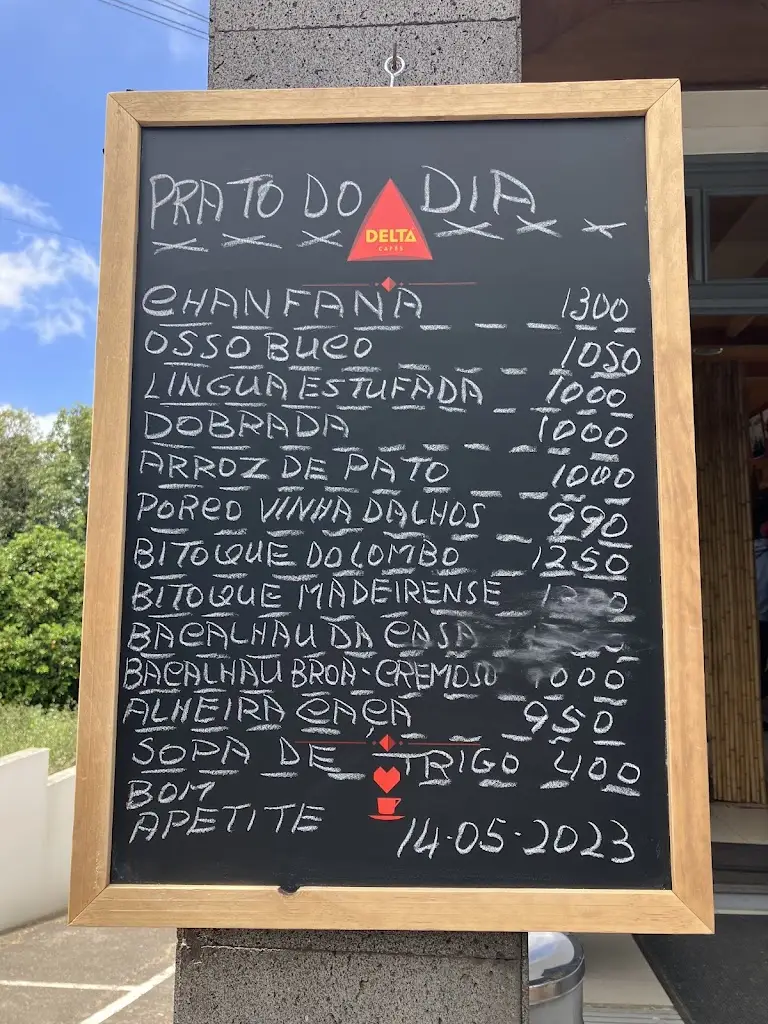 PRATO DO DIA
DELTA
CAFÉS
CHANFANA 1300
OSSO BUCO 1050
LINGUA ESTUFADA 1000
DOBRADA 1000
ARROZ DE PATO 1000
PORCO VINHA DALHOS 990
BITOQUE DO LOMBO 1250
BITOQUE MADEIRENSE
BACALHAU DA CASA
BACALHAU BROA-CREMOSO 1000
ALHEIRA CAÇA 950
SOPA DE TRIGO 400
BOM
APETITE 14-05-2023